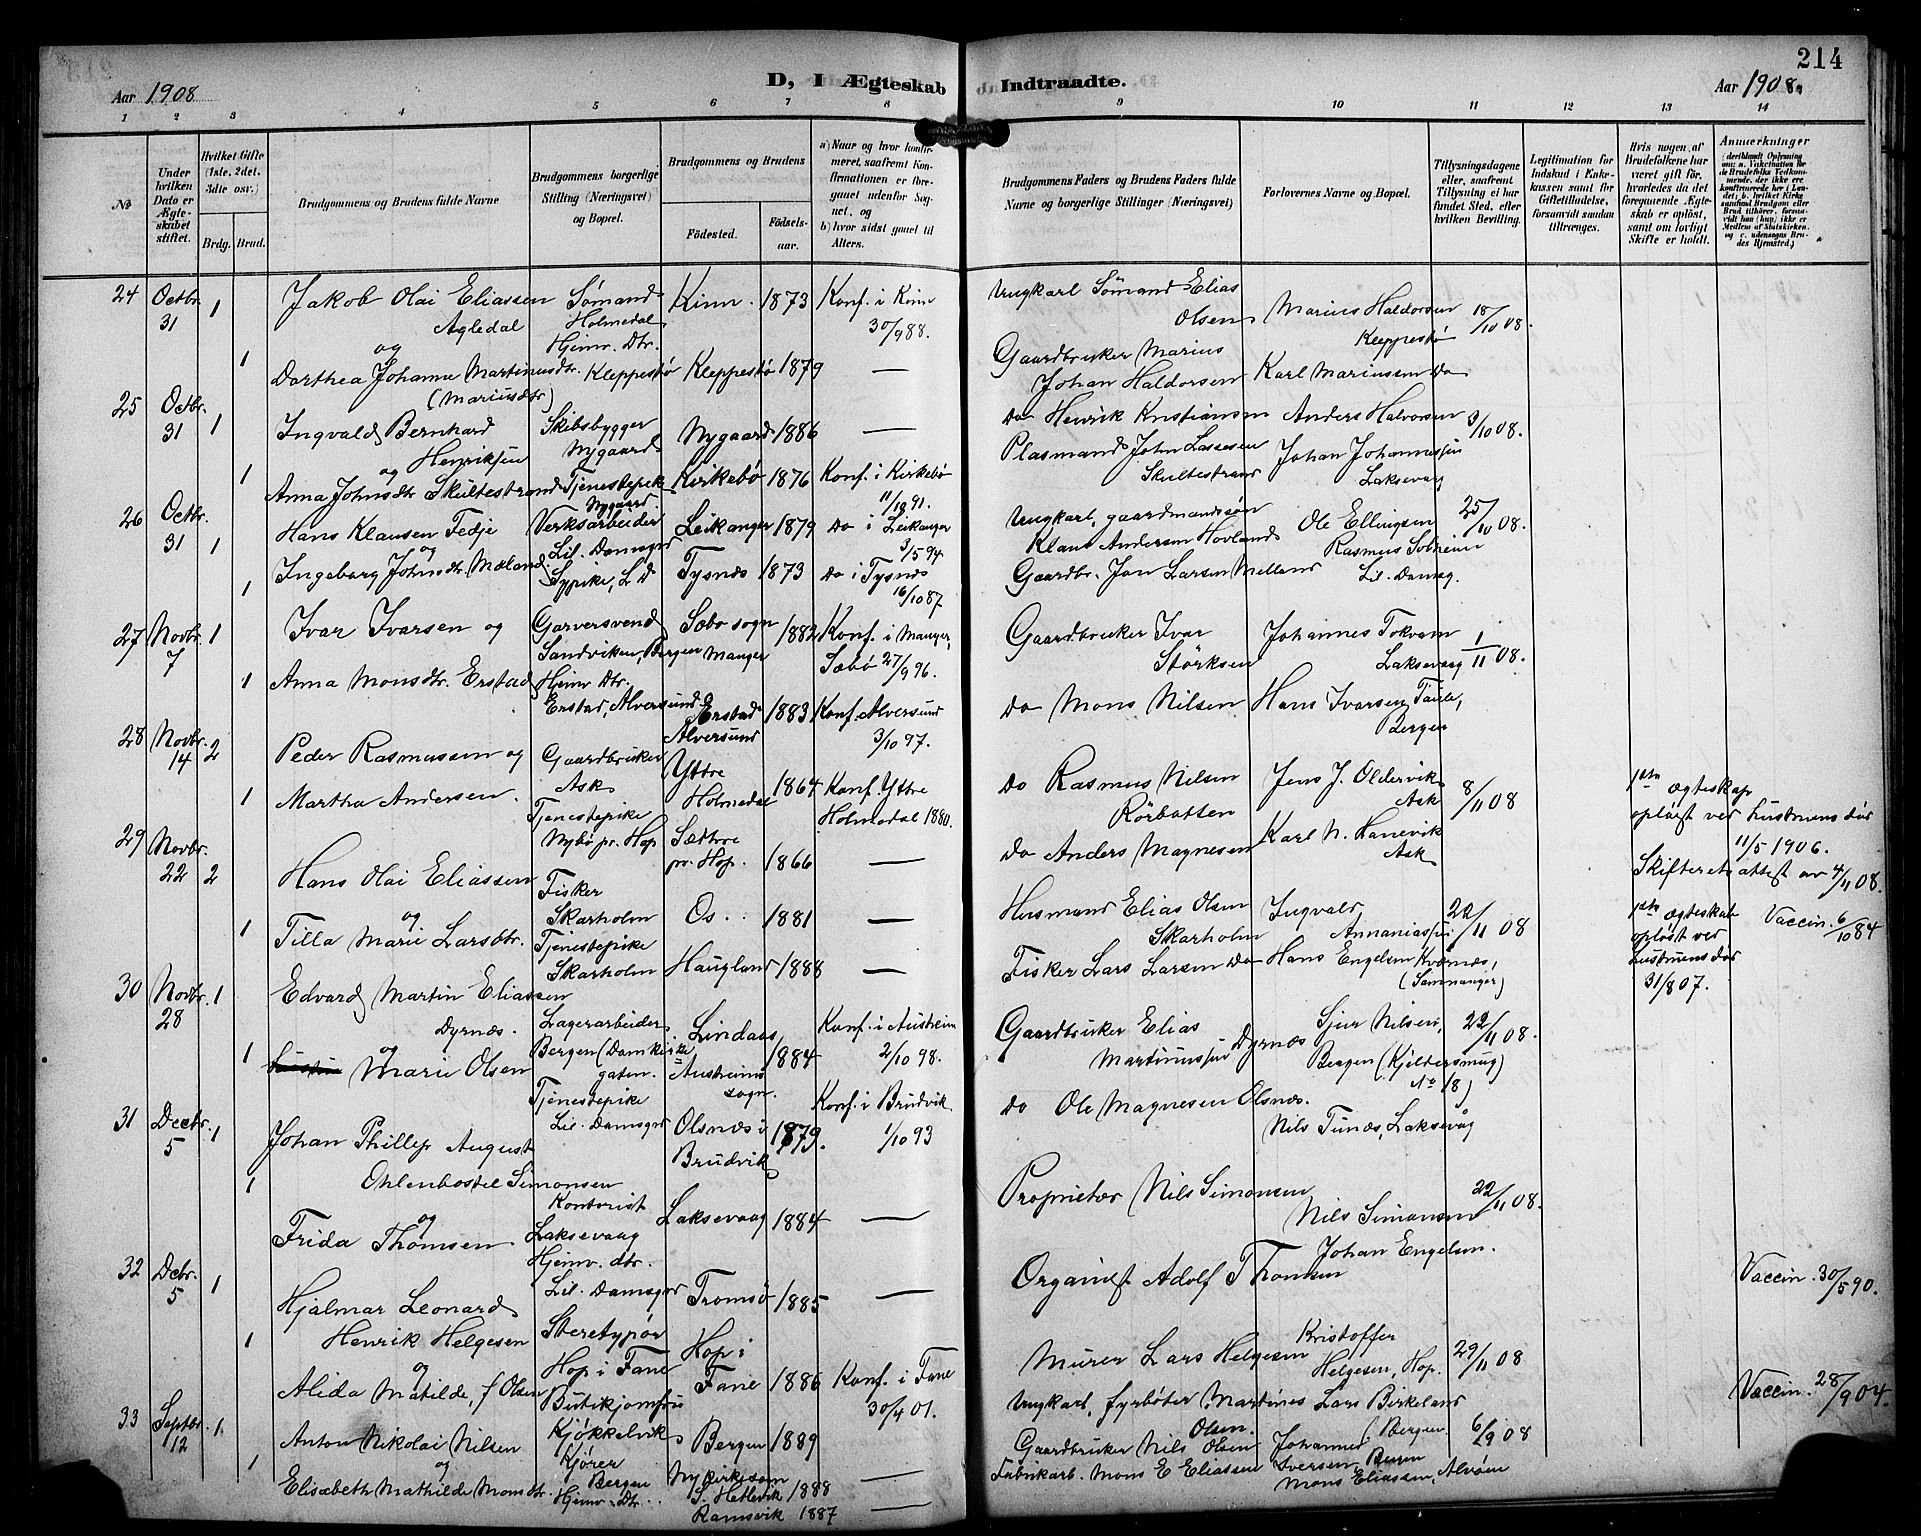 214
Aar 1908
D, I Ægteskab Indtraadte.
Aar 1908.
1 2 3 4 5 6 7 8 9 10 11 12 13 14
No
Under hvilken Dato er Ægteskabet stiftet.
Hvilket Gifte (1ste, 2det, 3die osv.)
Brdg. Brud.
Brudgommens og Brudens fulde Navne
Brudgommens borgerlige Stilling (Næringsvei) og Bopæl.
Brudgommens og Brudens
Fødested. Fødselsaar.
a) Naar og hvor konfirmeret, saafremt Konfirmationen er foregaaet udenfor Sognet, og
b) hvor sidst gaaet til Alters.
Brudgommens Faders og Brudens Faders fulde Navne og borgerlige Stillinger (Næringsvei)
Forlovernes Navne og Bopæl.
Tillysningsdagene eller, saafremt Tillysning ei har fundet Sted, efter hvilken Bevilling.
Legitimation for Indskud i Enkekassen samt for Giftetilladelse, forsaavidt saadan tiltrænges.
Hvis nogen af Brudefolkene har været gift før, hvorledes da det foregaaende Ægteskab er opløst, samt om lovligt Skifte er holdt.
Anmærkninger
24 Octbr. 31 1 Jakob Olai Eliassen Sømand Kinn 1873 Konf. i Kinn Ungkarl Sømand Elias
Agledal Holmedal 30/9 88. Olsen Marius Haldorsen 18/10 08.
og Hjemv. Dtr. Gaardbruker Marius Kleppestø
1 Dorthea Johanne Martinusdtr. Kleppestø Kleppestø 1879 — Johan Haldorsen Karl Mariussen Do
(Mariusdtr)
25 Octbr. 31 1 Ingvald Bernhard Skibsbygger Nygaard 1886 — Do Henrik Kristiansen Anders Halvorsen 3/10 08.
og Henriksen Nygaard Plasmand John Lassesen Johan Johannessen
1 Anna Johnsdtr Skultestrand Tjenestepike Kirkebø 1876 Konf. i Kirkebø Skultestrand Laksevaag
Nygaard. 11/10 91.
26 Octbr. 31 1 Hans Klausen Fedje Verksarbeider Leikanger 1879 Do i Leikanger Ungkarl, gaardmandssøn Ole Ellingsen 25/10 08.
og Lil. Damsgrd 3/5 94 Klaus Andersen Hovland Rasmus Solheim
1 Ingeborg Johnsdtr. Mæland Sypike, L D Tysnæs 1873 Do i Tysnæs Gaardbr. Jon Larsen Melland Lil. Damsg.
16/10 87
27 Novbr. 7 1 Ivar Ivarsen og Garversvend Sæbø sogn 1882 Konf. i Manger, Gaardbruker Ivar Johannes Tokvam 1/11 08.
Sandviken, Bergen Manger Sæbø 27/9 96. Størksen Laksevaag
1 Anna Monsdtr. Erstad Hjemv Dtr.
Erstad, Alversund Erstad 1883 Konf. Alversund Do Mons Nilsen Hans Ivarsen
Alversund 3/10 97. Bergen
28 Novbr. 14 2 Peder Rasmussen og Gaardbruker Yttre 1864 Konf. Yttre Do Rasmus Nilsen Jens J. Oldervik 8/11 08 1ste ægteskap
Ask Holmedal Holmedal 1880. Rörbatten Ask opløst ved hustruens død
1 Martha Andersen. Tjenestepike 11/5 1906.
Nybø pr. Hop Sætre pr. Hop. 1866 — Do Anders Magnesen Karl N. Hanevik Ask Skifterets attest av 4/11 08.
29 Novbr. 22 2 Hans Olai Eliassen Fisker Os. 1881 — Husmand Elias Olsen Ingvald 22/11 08 1ste ægteskab Vaccin. 6/10 84
og Skarholm Skarholm Annaniassen opløst ved
1 Tilla Marie Larsdtr. Tjenestepike Haugland 1888 — Fisker Lars Larsen Do Hans Engelsen Kvernes, hustruens død
Skarholm (Samnanger) 31/8 07.
30 Novbr. 28 1 Edvard Martin Eliassen
Dyrnæs. Lagerarbeider Lindaas, 1884 Konf. i Austrheim Gaardbruker Elias Sjur Nilsen, 22/11 08.
og Bergen Austrheims sogn. 2/10 98. Martinussen Dyrnæs Bergen
gaten. No 18)
1 Marie Olsen Tjenestepike Konf. i Brudvik Do Ole Magnesen Olsnæs.
Lil. Damsgrd Olsnæs i Brudvik 1879. 1/10 93 Nils Tunæs, Laksevåg
31 Decbr. 5 1 Johan Phillip August
Ohlenbostel Simonsen Proprietær Nils Simonsen 22/11 08.
Kontorist Laksevaag 1884 — Nils Simonsen
1 og Laksevaag
Frida Thomsen Hjemv. dtr. Johan Engelsen.
Lil. Damsgrd Tromsø 1885 — Organist Adolf Thomsen Vaccin. 30/5 90.
32 Dcbr. 5 1 Hjalmar Leonard
Henrik Helgesen Steretypør Hop i Murer Lars Helgesen Kristoffer 29/11 08
og Hop i Fane Fane 1886 Konf. i Fane Helgesen, Hop.
1 Alida Matilde, f Olsen Butikjomfru 30/4 01. Ungkarl, fyrbøter Martines Lars Birkeland Vaccin. 28/9 04.
Kjøkkelvik Bergen 1889 Olsen. Bergen
33 Septbr. 12 1. Anton Nikolai Nilsen Kjører Gaardbruker Nils Olsen Johannes 6/9 08
og Bergen S. Hetlevik 1888 — Iversen,
1 Elisabeth Mathilde Monsdtr. Hjemv. Dtr. Ramsvik 1887 — Fabrikarb. Mons E Eliassen Mons Eliassen, Alvøen